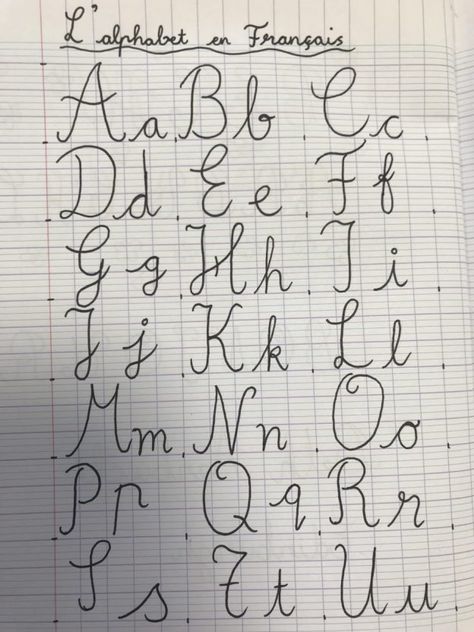 L'alphabet en Français
A a . B b . C c .
D d . E e . F f .
G g . H h . I i .
J j . K k . L l .
M m . N n . O o .
P p . Q q . R r .
S s . T t . U u .